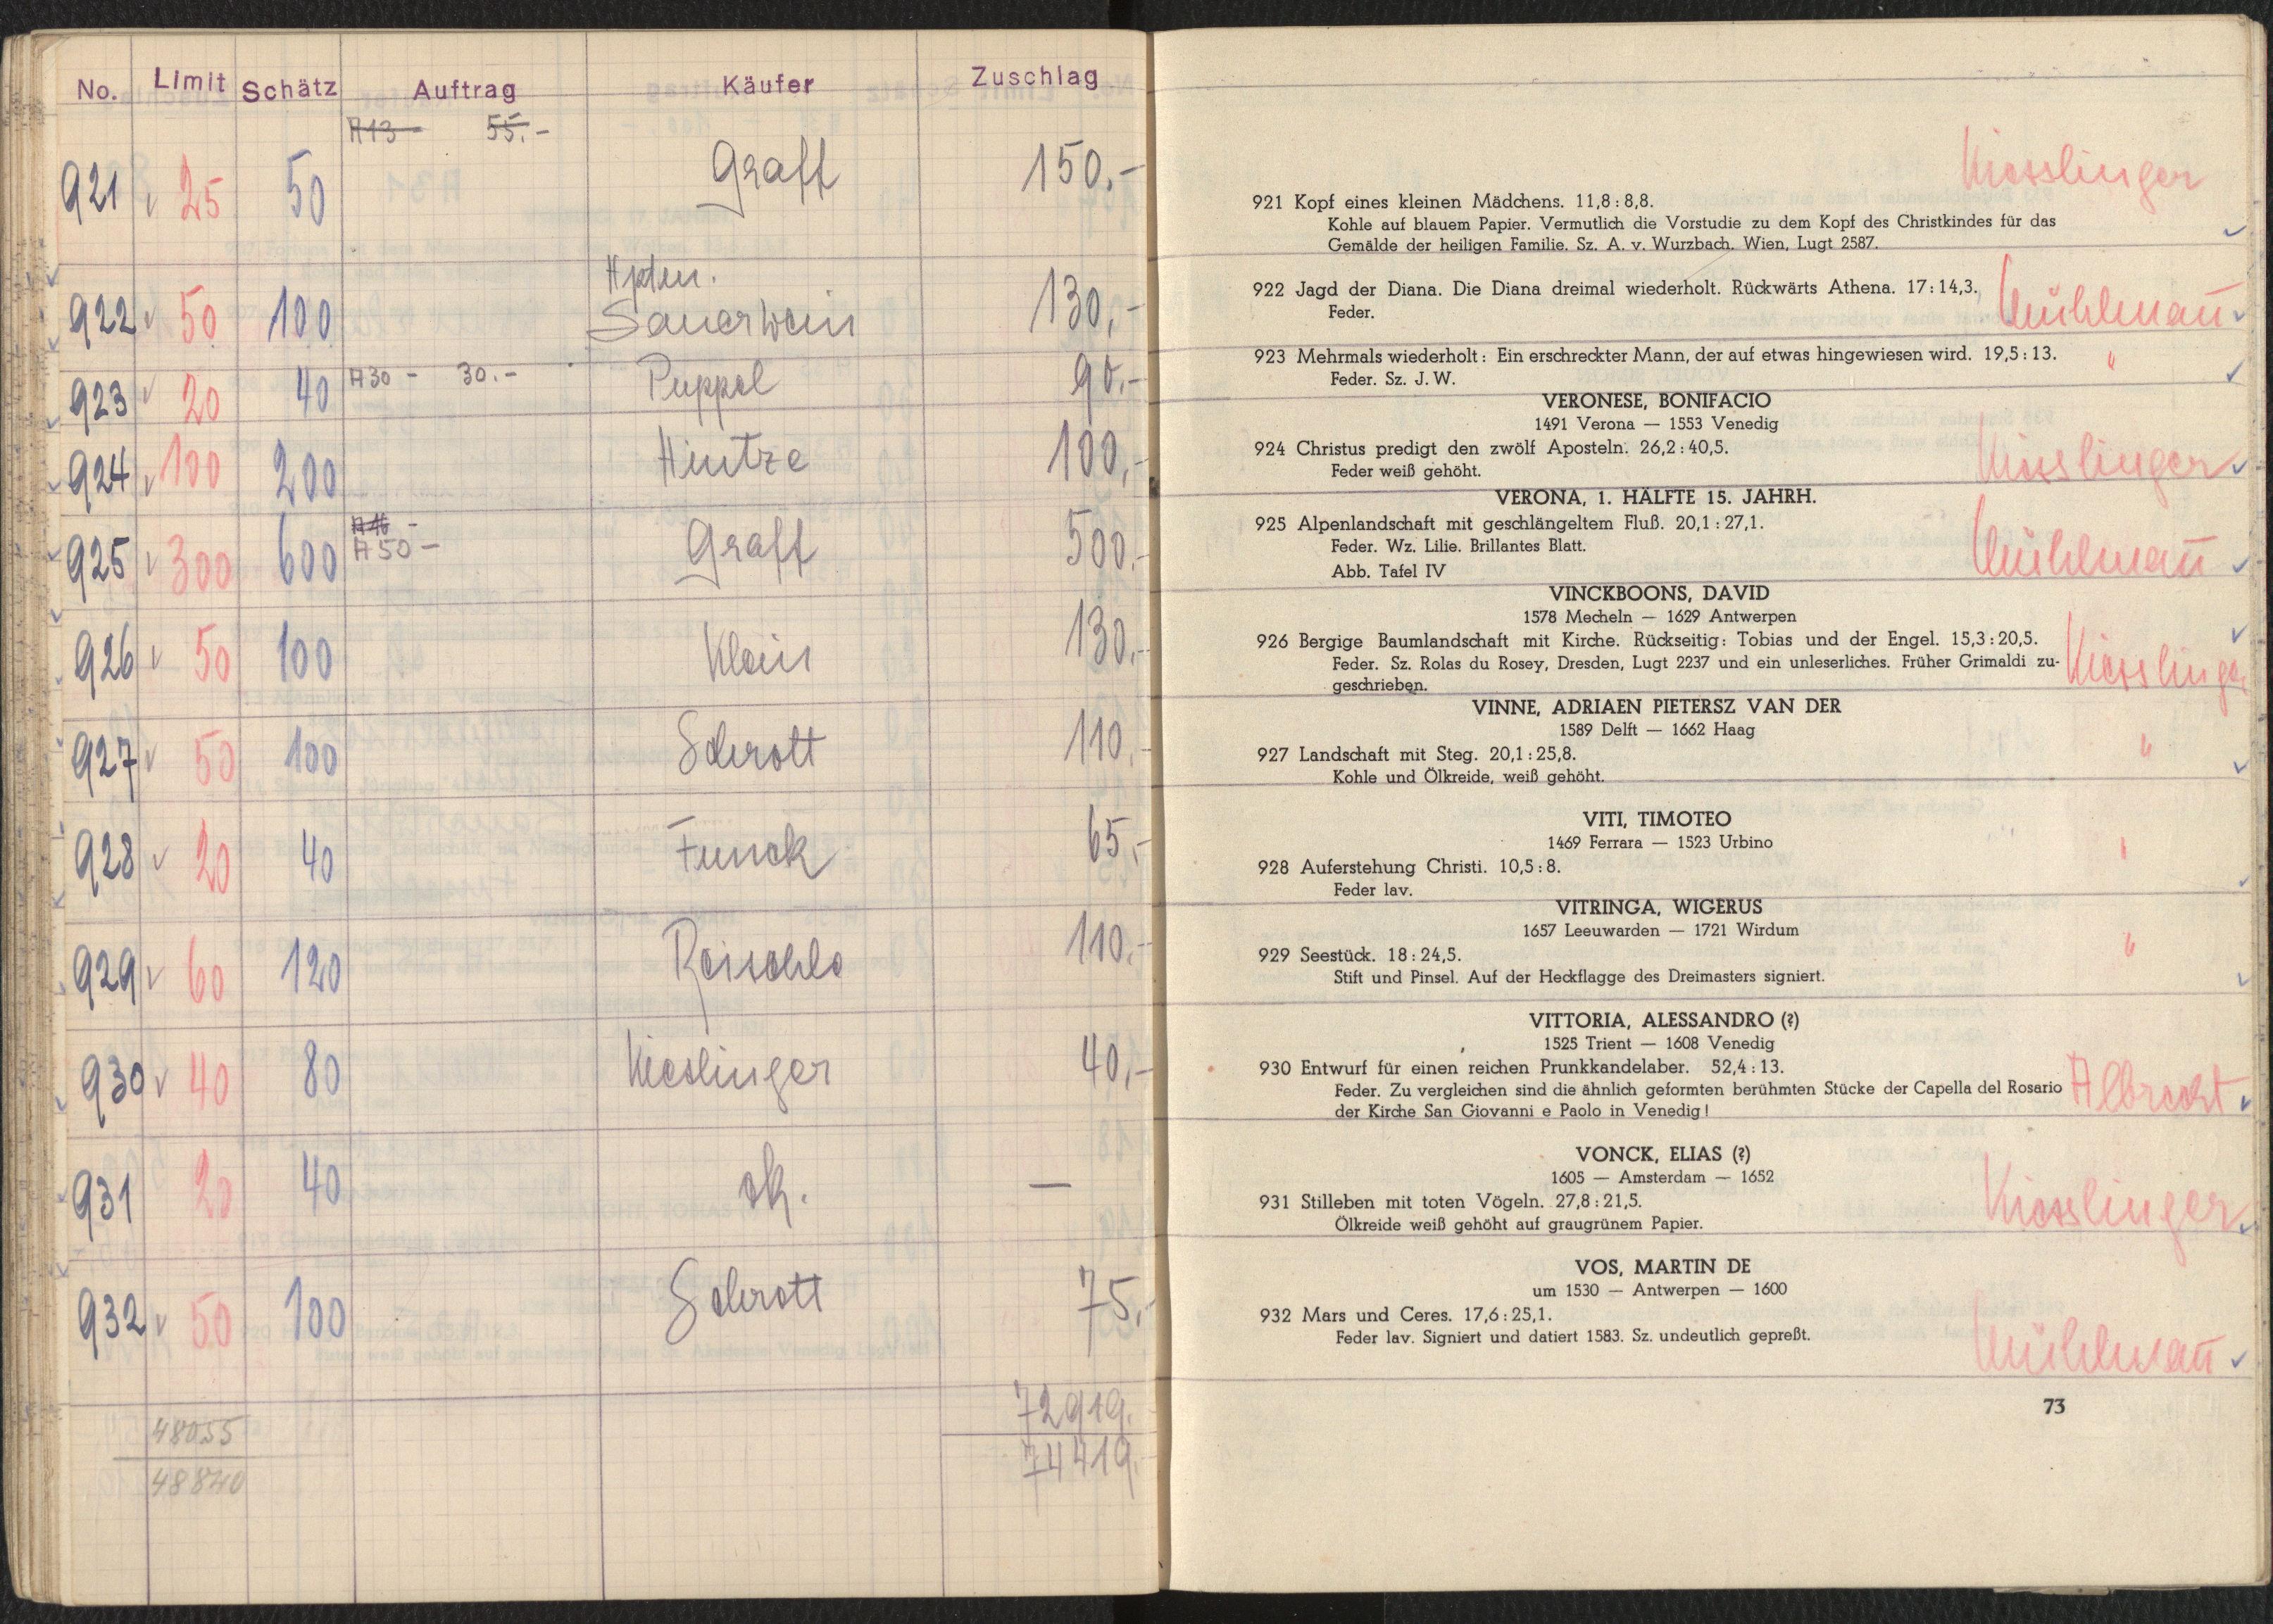 No. Limit Schätz Auftrag Käufer Zuschlag
A13 - 55.-
921 25 50 Graff 150,-
Hptm.
922 50 100 Sauerwein 130,-
923 20 40 A30 - 30.- Puppel 90,-
924 100 200 Hintze 100,-
A16 -
925 300 600 A50 - Graff 500,-
926 50 100 Klein 130,-
927 50 100 Schrott 110,-
928 20 40 Funck 65,-
929 60 120 Roischle 110,-
930 40 80 Kieslinger 40,-
931 20 40 —
932 50 100 Schrott 75,-
72919.
48055
74419.
48840
Kiesslinger
921 Kopf eines kleinen Mädchens. 11,8 : 8,8.
Kohle auf blauem Papier. Vermutlich die Vorstudie zu dem Kopf des Christkindes für das
Gemälde der heiligen Familie. Sz. A. v. Wurzbach. Wien, Lugt 2587.
922 Jagd der Diana. Die Diana dreimal wiederholt. Rückwärts Athena. 17 : 14,3. Mühlmañ
Feder.
923 Mehrmals wiederholt: Ein erschreckter Mann, der auf etwas hingewiesen wird. 19,5 : 13. "
Feder. Sz. J. W.
VERONESE, BONIFACIO
1491 Verona — 1553 Venedig
924 Christus predigt den zwölf Aposteln. 26,2 : 40,5. Kiesslinger
Feder weiß gehöht.
VERONA, 1. HÄLFTE 15. JAHRH.
925 Alpenlandschaft mit geschlängeltem Fluß. 20,1 : 27,1.
Feder. Wz. Lilie. Brillantes Blatt. Mühlmañ
Abb. Tafel IV
VINCKBOONS, DAVID
1578 Mecheln — 1629 Antwerpen
926 Bergige Baumlandschaft mit Kirche. Rückseitig: Tobias und der Engel. 15,3 : 20,5.
Feder. Sz. Rolas du Rosey, Dresden, Lugt 2237 und ein unleserliches. Früher Grimaldi zu- Kiesslinger
geschrieben.
VINNE, ADRIAEN PIETERSZ VAN DER
1589 Delft — 1662 Haag
927 Landschaft mit Steg. 20,1 : 25,8. "
Kohle und Ölkreide, weiß gehöht.
VITI, TIMOTEO
1469 Ferrara — 1523 Urbino "
928 Auferstehung Christi. 10,5 : 8.
Feder lav.
VITRINGA, WIGERUS
1657 Leeuwarden — 1721 Wirdum
929 Seestück. 18 : 24,5. "
Stift und Pinsel. Auf der Heckflagge des Dreimasters signiert.
VITTORIA, ALESSANDRO (?)
1525 Trient — 1608 Venedig
930 Entwurf für einen reichen Prunkkandelaber. 52,4 : 13.
Feder. Zu vergleichen sind die ähnlich geformten berühmten Stücke der Capella del Rosario Albrecht
der Kirche San Giovanni e Paolo in Venedig!
VONCK, ELIAS (?)
1605 — Amsterdam — 1652
931 Stilleben mit toten Vögeln. 27,8 : 21,5. Kiesslinger
Ölkreide weiß gehöht auf graugrünem Papier.
VOS, MARTIN DE
um 1530 — Antwerpen — 1600
932 Mars und Ceres. 17,6 : 25,1.
Feder lav. Signiert und datiert 1583. Sz. undeutlich gepreßt. Mühlmañ
73